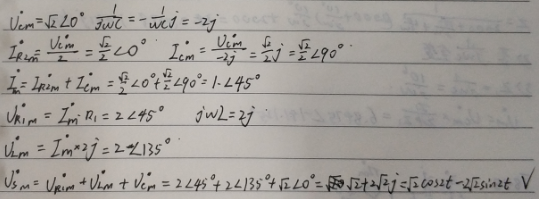 U̇cm=√2∠0° 1/jwC=-1/wC j=-2j
İR2m=U̇cm/2=√2/2∠0° İcm=U̇cm/-2j=√2/2 j=√2/2∠90°
İm=İR2m+İcm=√2/2∠0°+√2/2∠90°=1∠45°
U̇R1m=İm·R1=2∠45° jwL=2j
U̇Lm=İm*2j=2∠135°
U̇sm=U̇R1m+U̇Lm+U̇cm=2∠45°+2∠135°+√2∠0°=√2+2√2j=√2cos2t-2√2sin2t V